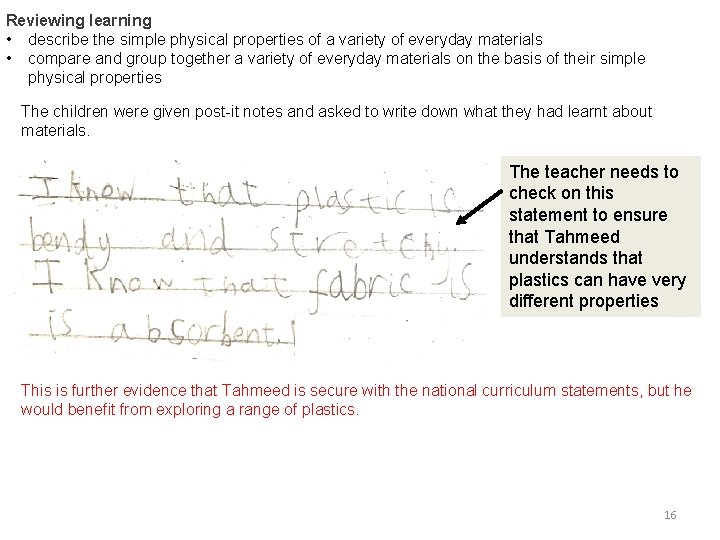 Reviewing learning
• describe the simple physical properties of a variety of everyday materials
• compare and group together a variety of everyday materials on the basis of their simple
physical properties
The children were given post-it notes and asked to write down what they had learnt about
materials.
I know that plastic is
bendy and stretchy.
I know that fabric is
is absorbent.
The teacher needs to
check on this
statement to ensure
that Tahmeed
understands that
plastics can have very
different properties
This is further evidence that Tahmeed is secure with the national curriculum statements, but he
would benefit from exploring a range of plastics.
16